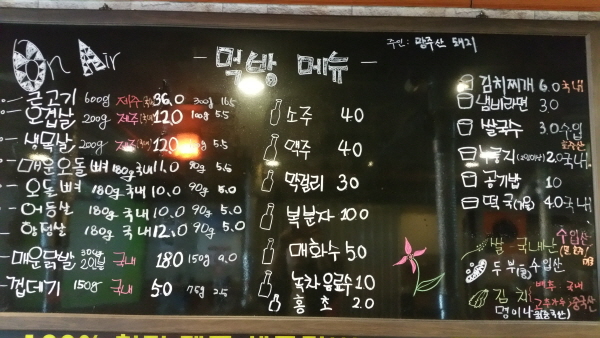 On Air
- 먹방 메뉴 -
주인: 망주산 돼지
근고기 600g 제주(국내) 36.0 300g 18.5
오겹살 200g 제주(국내) 12.0 100g 5.5
생목살 200g 제주(국내) 12.0 100g 5.5
매운오돌뼈 180g 국내 11.0 90g 5.5
오돌뼈 180g 국내 10.0 90g 5.0
180g 국내 10.0 90g 5.0
항정살 180g 국내 12.0 90g 5.0
매운닭발 국내 18.0 150g 9.0
껍데기 150g 국내 5.0 75g 2.5
소주 4.0
맥주 4.0
막걸리 3.0
복분자 10.0
매화수 5.0
녹차 음료수 1.0
홍초 2.0
김치찌개 6.0 국내
냄비라면 3.0
쌀국수 3.0 수입
누룽지 2.0 국내
공기밥 1.0
떡국 4.0 국내
쌀 국내산
두부(콩) 수입산
김치 배추 국내
고추가루 중국산
멍이나물(중국산)